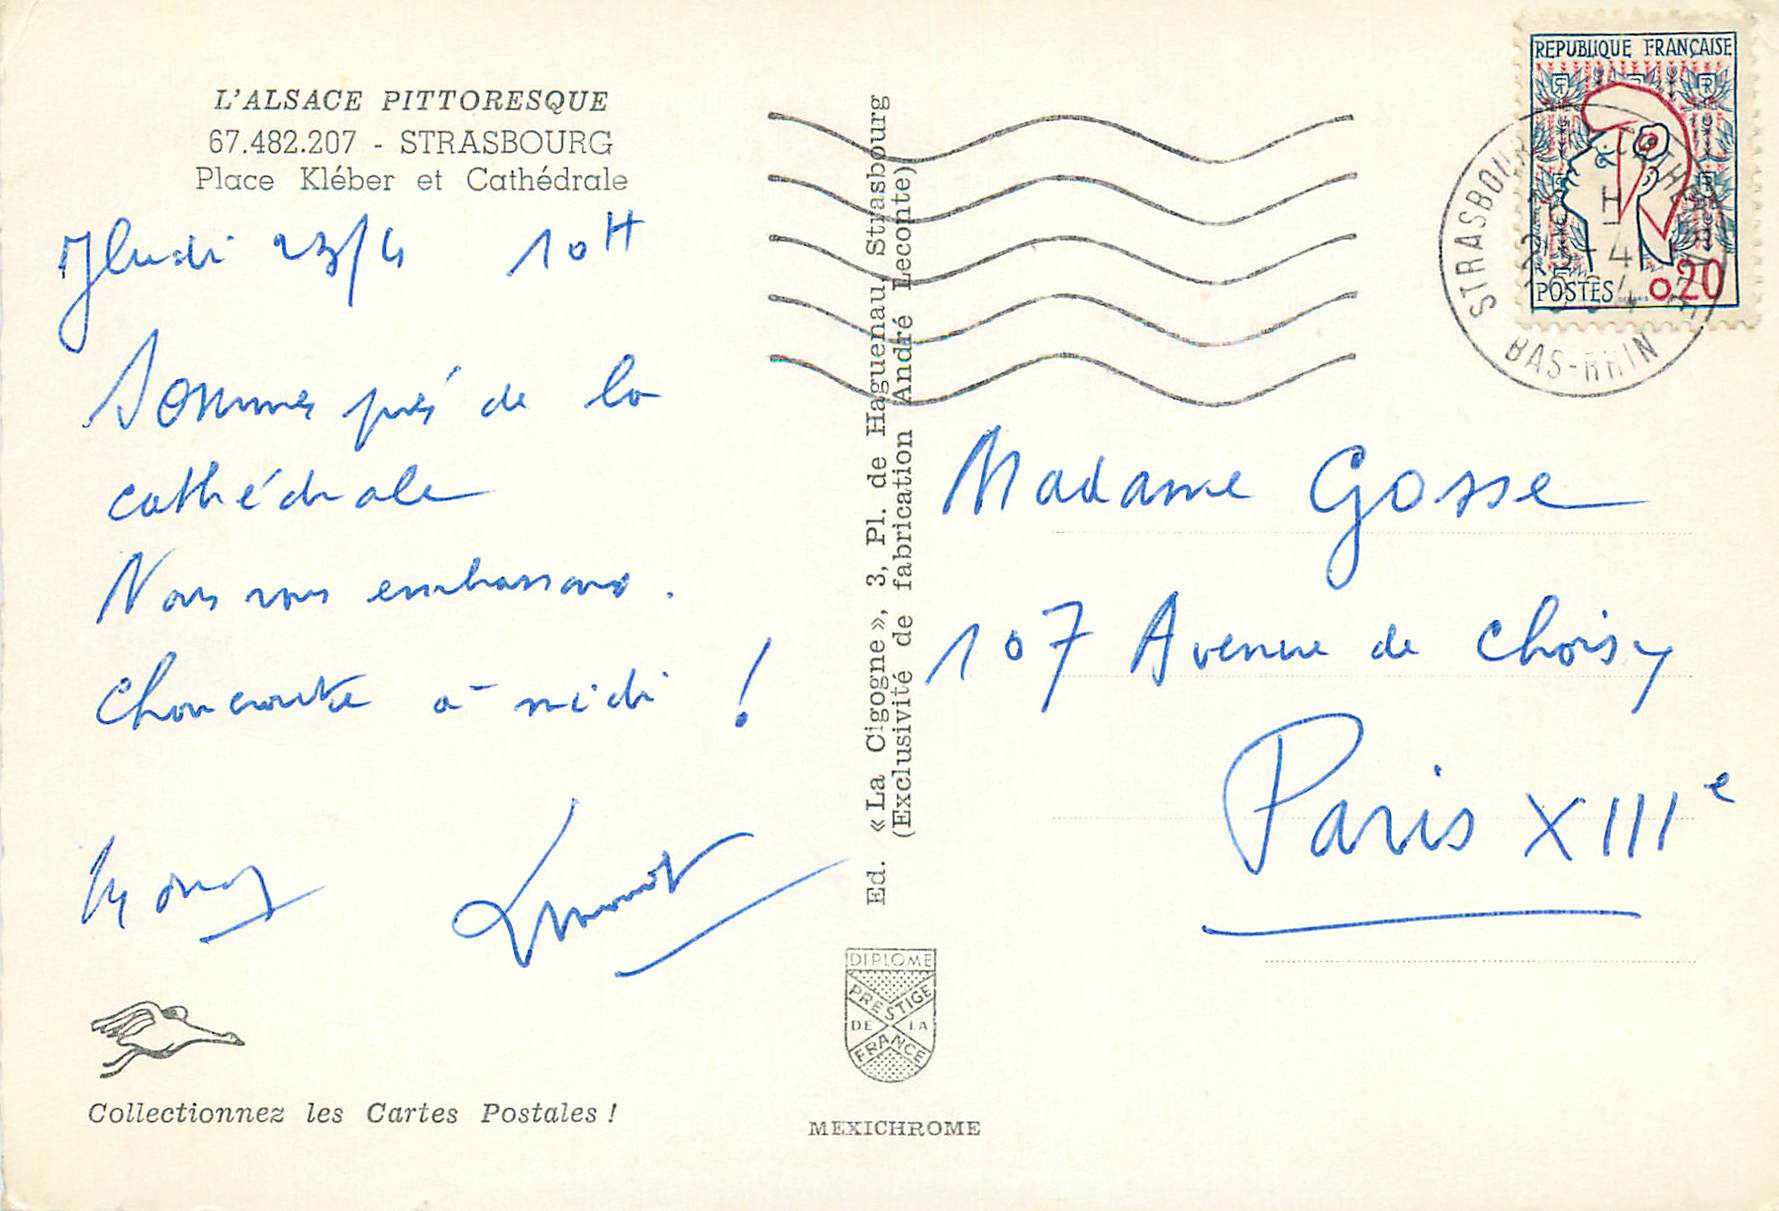 L'ALSACE PITTORESQUE
67.482.207 - STRASBOURG
Place Kléber et Cathédrale
Jeudi 23/4 10H
Sommes près de la
cathédrale
Nous vous embrassons.
Choucroute à midi !
Collectionnez les Cartes Postales !
Ed. «La Cigogne», 3, Pl. de Haguenau, Strasbourg
(Exclusivité de fabrication André Leconte)
DIPLOME
PRESTIGE
DE LA
FRANCE
MEXICHROME
REPUBLIQUE FRANÇAISE
POSTES 0,20
STRASBOURG
BAS-RHIN
Madame Gosse
107 Avenue de Choisy
Paris XIIIe